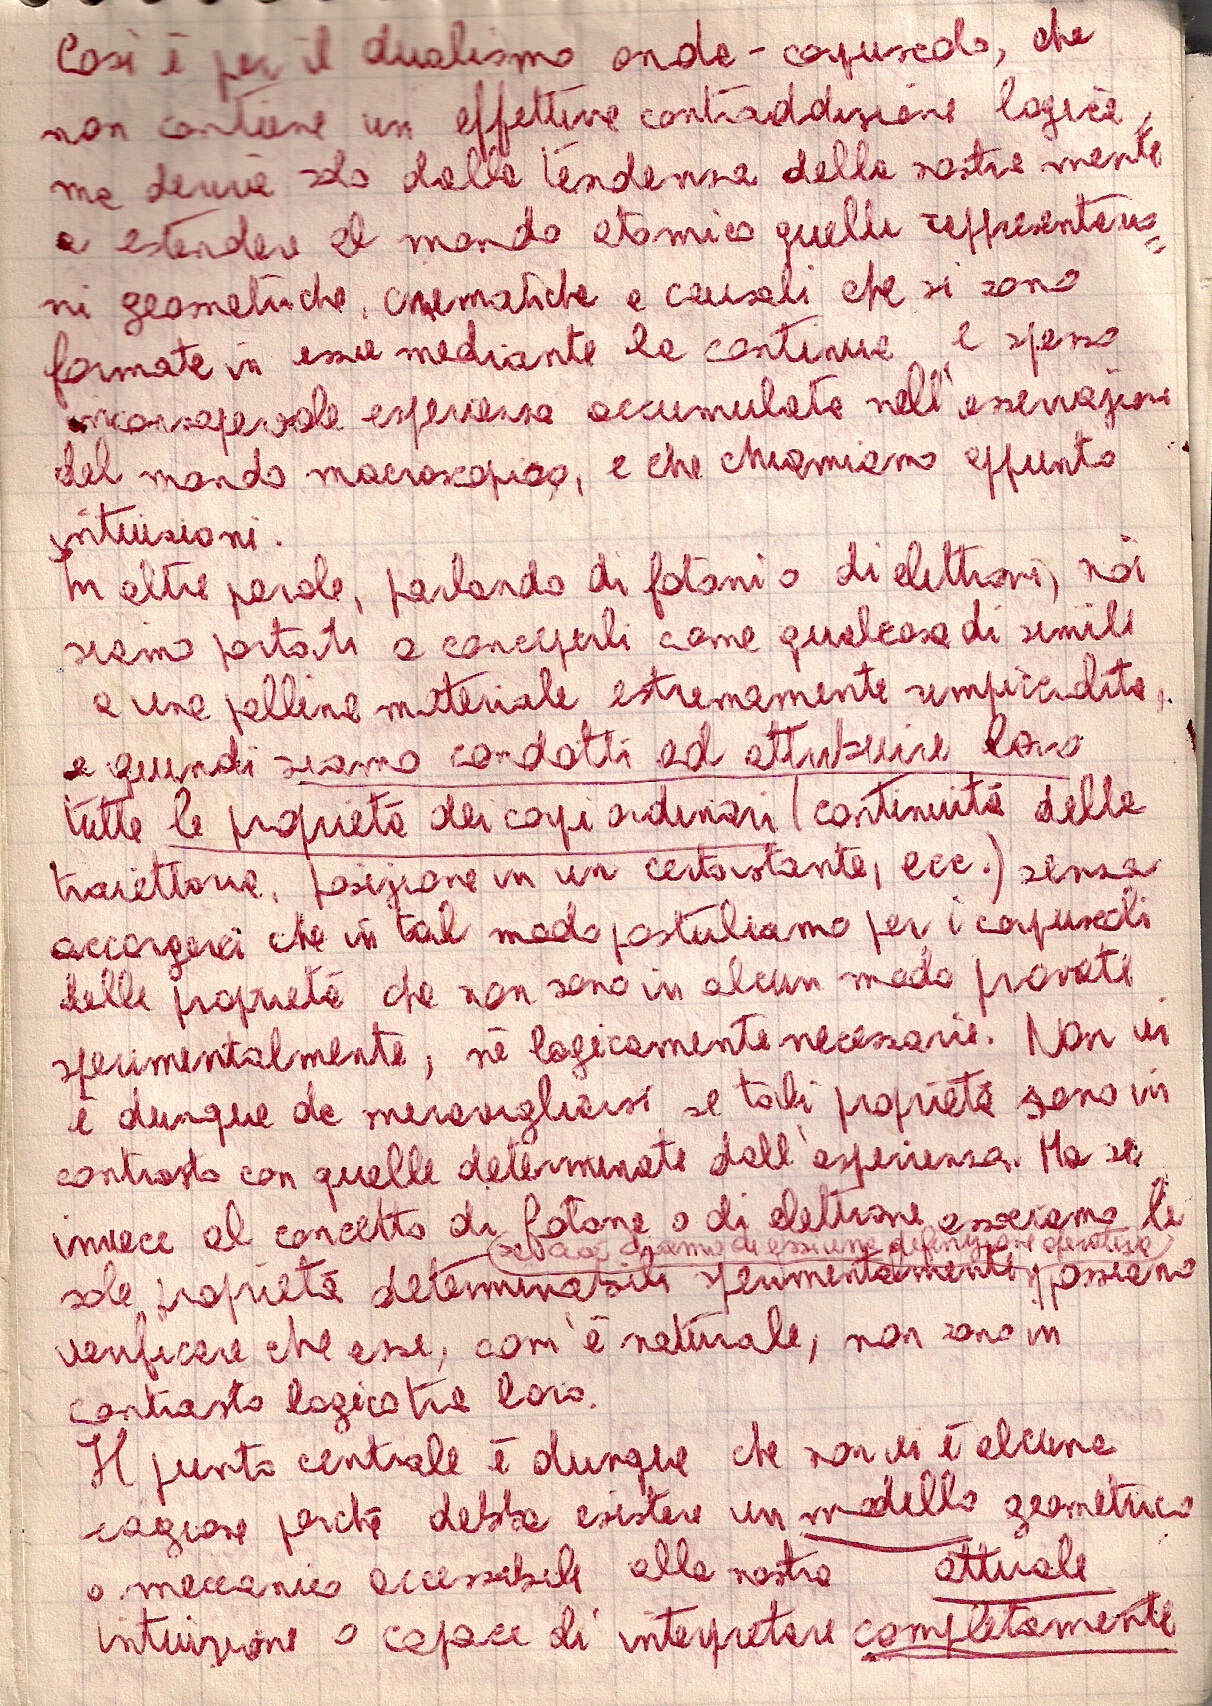 Così è per il dualismo onda-corpuscolo, che
non contiene un effettiva contraddizione logica,
ma deriva solo dalla tendenza della nostra mente
a estendere al mondo atomico quelle rappresentazio=
ni geometriche, cinematiche e causali che si sono
formate in essa mediante la continua e spesso
inconsapevole esperienza accumulata nell'osservazione
del mondo macroscopico, e che chiamiamo appunto
intuizioni.
In altre parole, parlando di fotoni o di elettroni, noi
siamo portati a concepirli come qualcosa di simile
a una pallina materiale estremamente rimpicciolita,
e quindi siamo condotti ad attribuire loro
tutte le proprietà dei corpi ordinari (continuità della
traiettoria, posizione in un certo istante, ecc.) senza
accorgerci che in tal modo postuliamo per i corpuscoli
delle proprietà che non sono in alcun modo provate
sperimentalmente, nè logicamente necessarie. Non vi
è dunque da meravigliarsi se tali proprietà sono in
contrasto con quelle determinate dall'esperienza. Ma se
invece al concetto di fotone o di elettrone associamo le
(se cioè diamo di essi una definizione operativa)
sole proprietà determinabili sperimentalmente, possiamo
verificare che esse, com'è naturale, non sono in
contrasto logico tra loro.
Il punto centrale è dunque che non vi è alcuna
ragione perchè debba esistere un modello geometrico
o meccanico accessibile alla nostra attuale
intuizione o capace di interpretare completamente